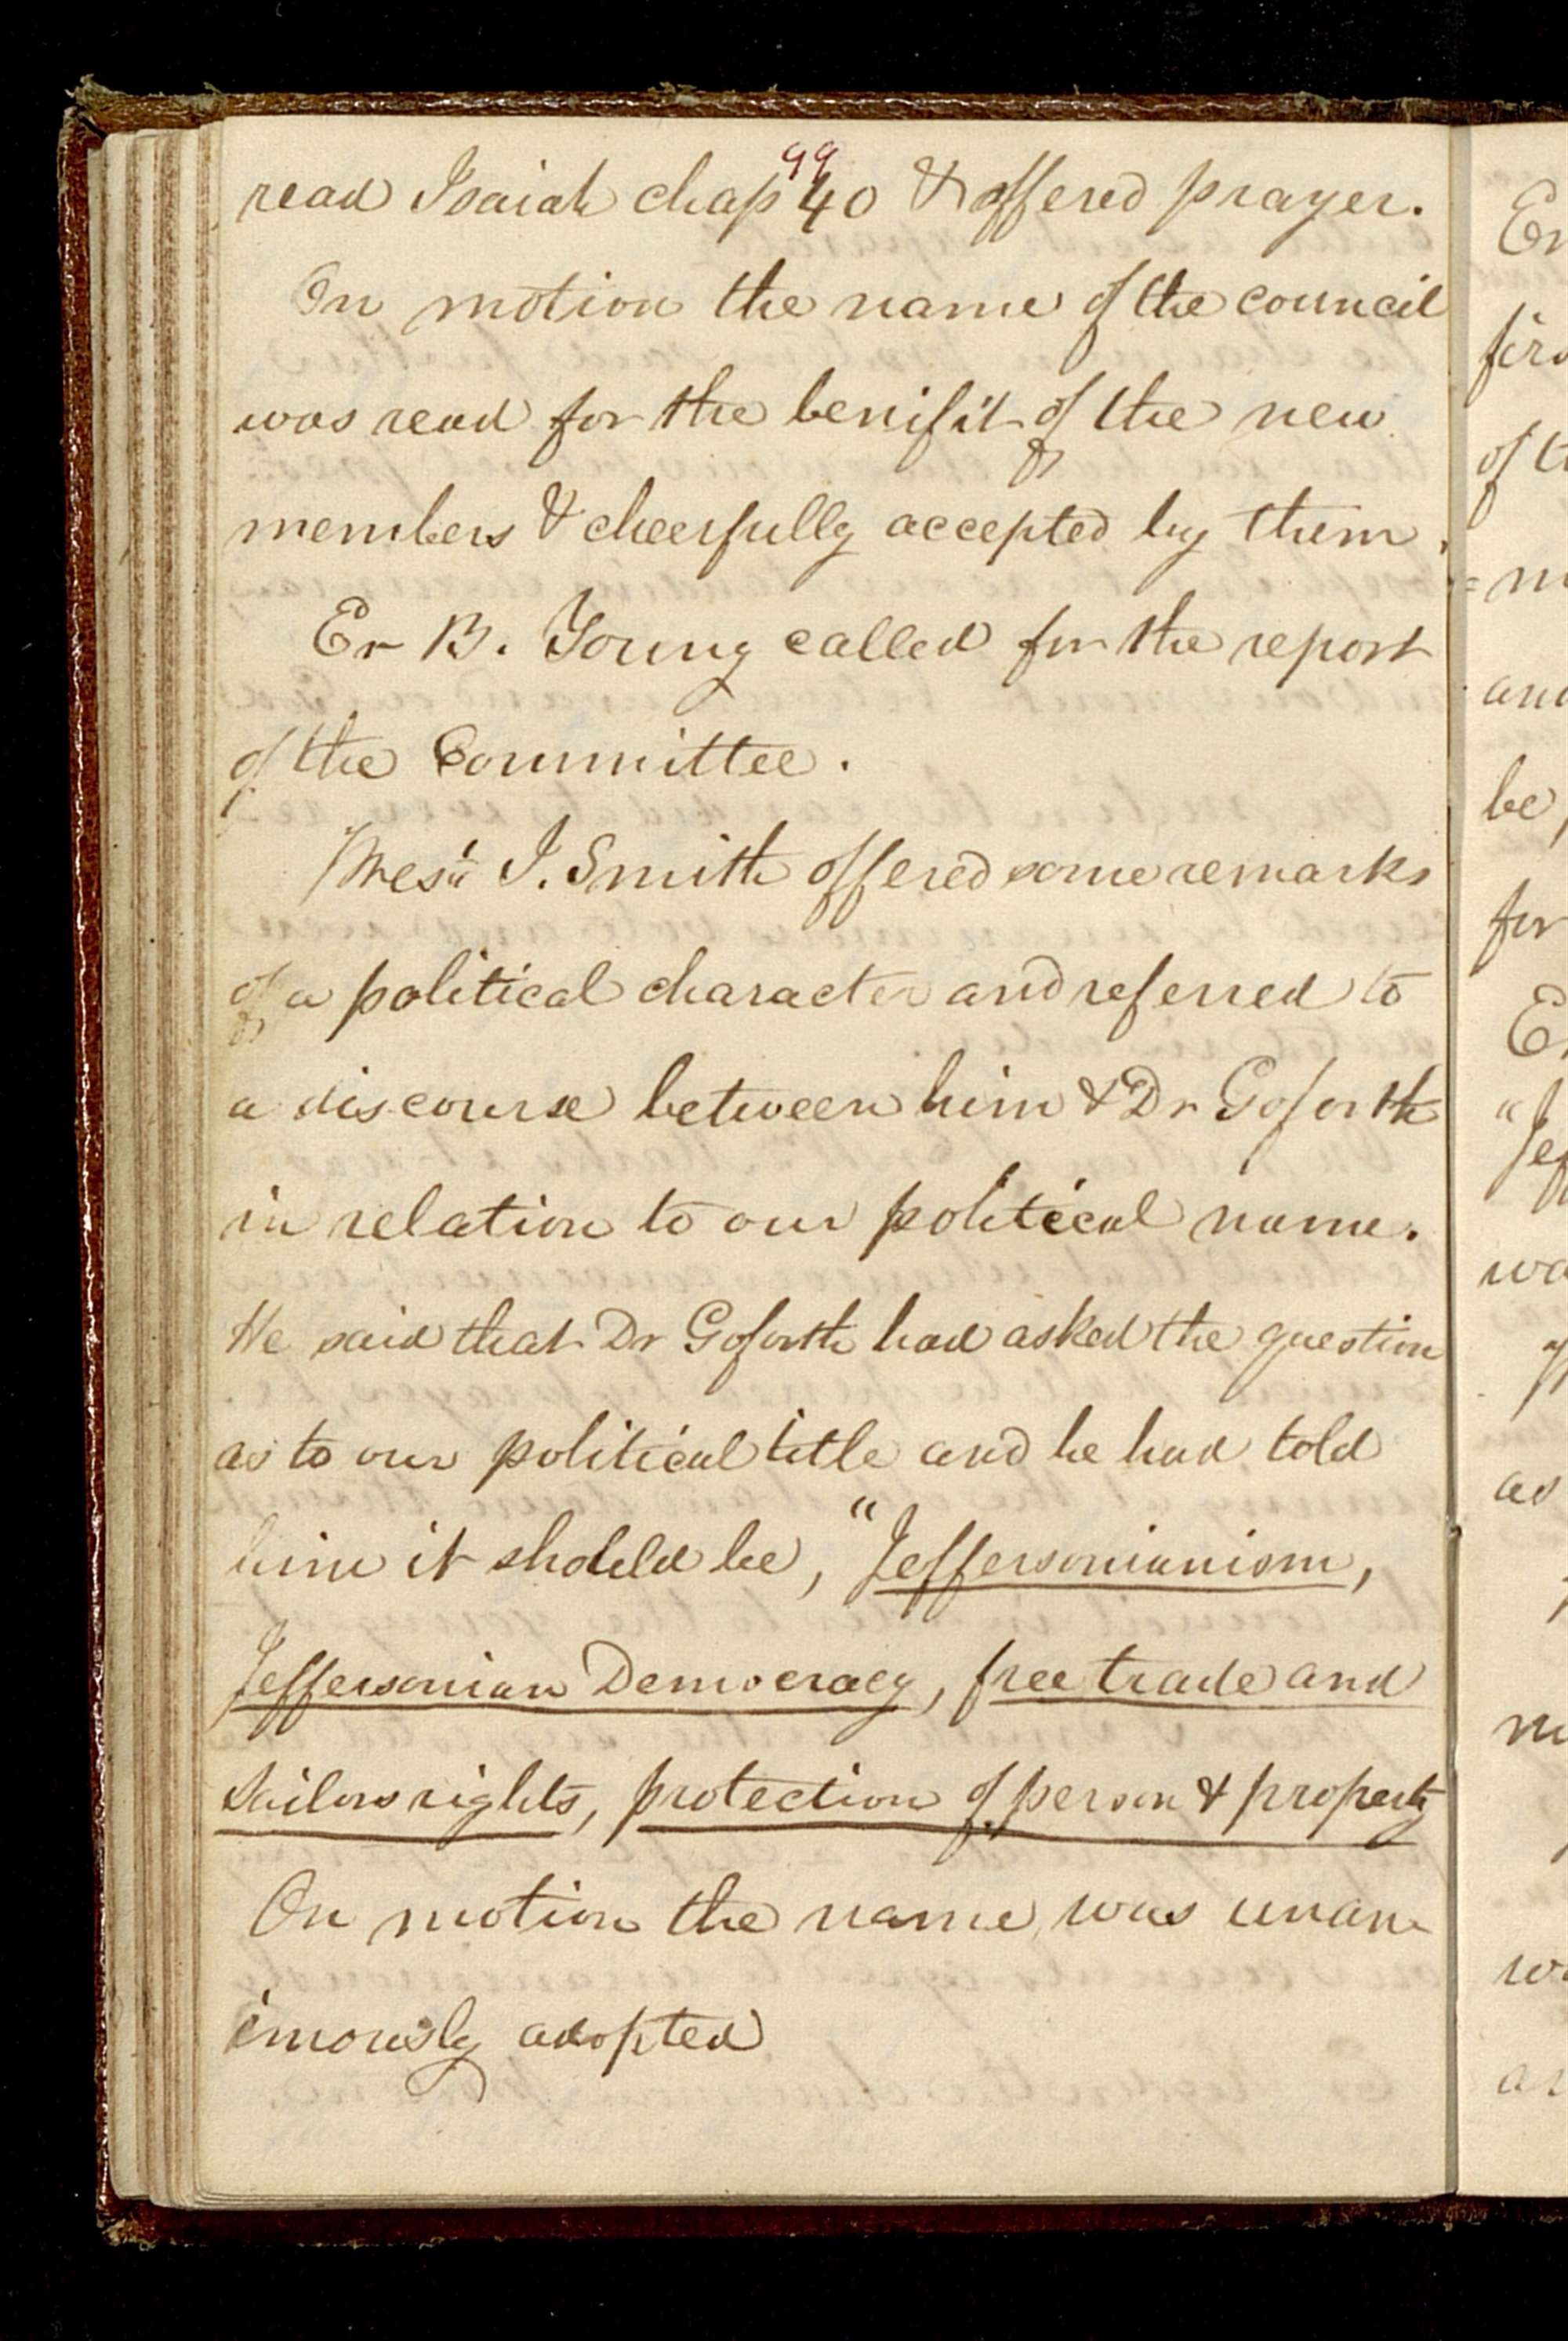 99
read Isaiah chap 40 & offered prayer.
On motion the name of the council
was read for the benifit of the new
members & cheerfully accepted by them.
Er B. Young called for the report
of the Committee.
Prest J. Smith offered some remarks
of a political character and referred to
a discourse between him & Dr Goforth
in relation to our political name.
He said that Dr Goforth had asked the question
as to our political title and he had told
him it should be, "Jeffersonianism,
Jeffersonian Democracy, free trade and
Sailors rights, protection of person & property
On motion the name was unan-
imously adopted
Er
firs
of t
=m
and
be,
for
E
"Jef
wa
as
m
w
as